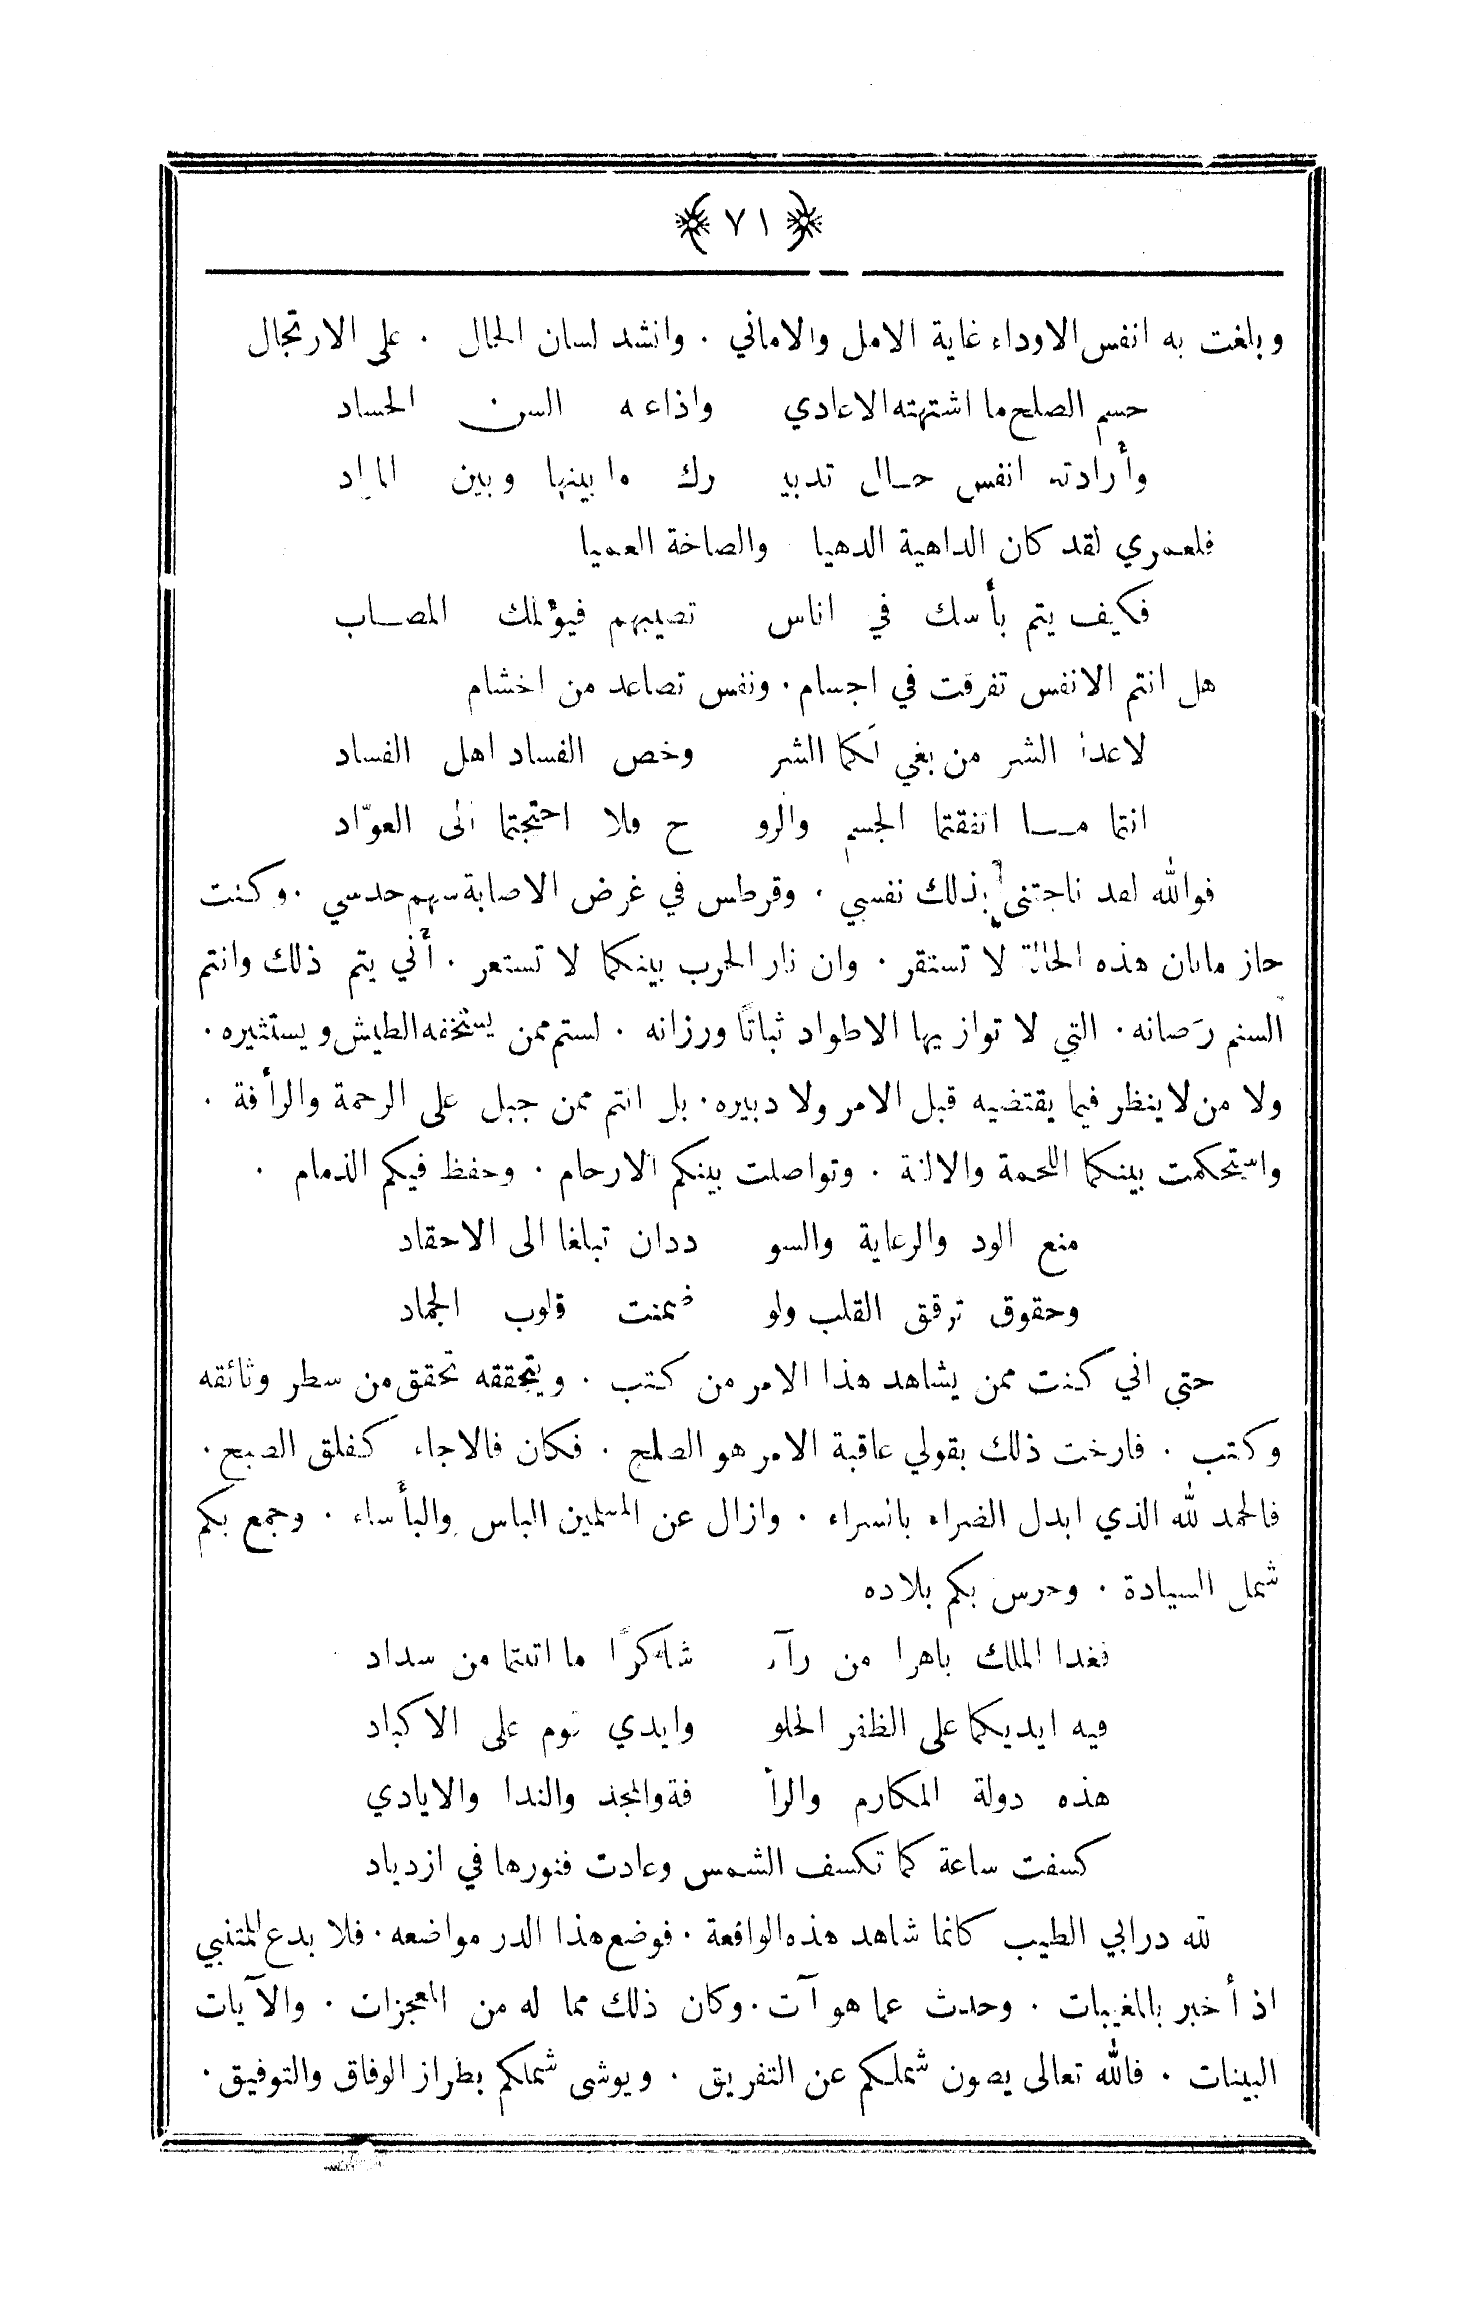 ﴿ ٧١ ﴾
وبلغت به انفس الاوداء غاية الامل والاماني . وانشد لسان الحال . على الارتجال
حسم الصلح ما اشتهته الاعادي واذاعه السن الحساد
وأرادته انفس حال تدبير رك ما بينها وبين المراد
فلعمري لقد كان الداهية الدهيا والصاخة العميا
فكيف يتم بأسك في اناس تصيبهم فيؤلمك المصاب
هل انتم الانفس تفرقت في اجسام . ونفس تصاعد من اخشام
لاعدا الشر من بغي لَكما الشر وخص الفساد اهل الفساد
انتما ما اتفقتما الجسم والرو ح فلا احتجتما الى العوّاد
فوالله لقد ناجتني بذلك نفسي . وقرطس في غرض الاصابة سهم حدسي . وكنت
جاز مابان هذه الحالة لا تستقر . وان نار الحرب بينكما لا تستعر . أنى يتم ذلك وانتم
السنم رَصانه . التي لا توازيها الاطواد ثباتًا ورزانه . لستم ممن يستخفه الطيش ويستثيره .
ولا من لا ينظر فيما يقتضيه قبل الامر ولا دبيره . بل انتم ممن جبل على الرحمة والرأفة .
واستحكمت بينكما اللحمة والالفة . وتواصلت بينكم الارحام . وحفظ فيكم الذمام .
منع الود والرعاية والسو ددان تبلغا الى الاحقاد
وحقوق ترقق القلب ولو ضمنت قلوب الجماد
حتى اني كنت ممن يشاهد هذا الامر من كتب . ويتحققه تحقق من سطر وثائقه
وكتب . فارخت ذلك بقولي عاقبة الامر هو الصلح . فكان فالاجاء كفلق الصبح .
فالحمد لله الذي ابدل الضراء بالسراء . وازال عن المسلمين الباس والبأساء . وجمع بكم
شمل السيادة . وحرس بكم بلاده
فغدا الملك باهرا من رآء شاكرًا ما اتيتما من سداد
فيه ايديكما على الظفر الحلو وايدي قوم على الاكباد
هذه دولة المكارم والرأ فة والمجد والندا والايادي
كسفت ساعة كما تكسف الشمس وعادت فنورها في ازدياد
لله در ابي الطيب كانما شاهد هذه الواقعة . فوضع هذا الدر مواضعه . فلا بدع المتنبي
اذ أخبر بالمغيبات . وحدث عما هو آت . وكان ذلك مما له من المعجزات . والآيات
البينات . فالله تعالى يصون شملكم عن التفريق . ويوشى شملكم بطراز الوفاق والتوفيق .